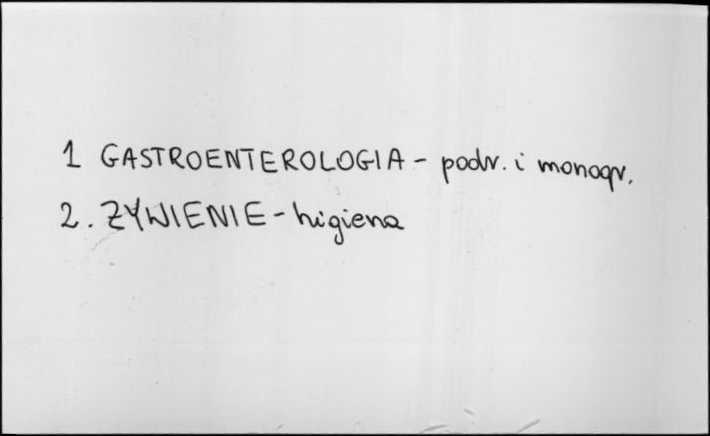 1 GASTROENTEROLOGIA - podr. i monogr.
2. ŻYWIENIE - higiena